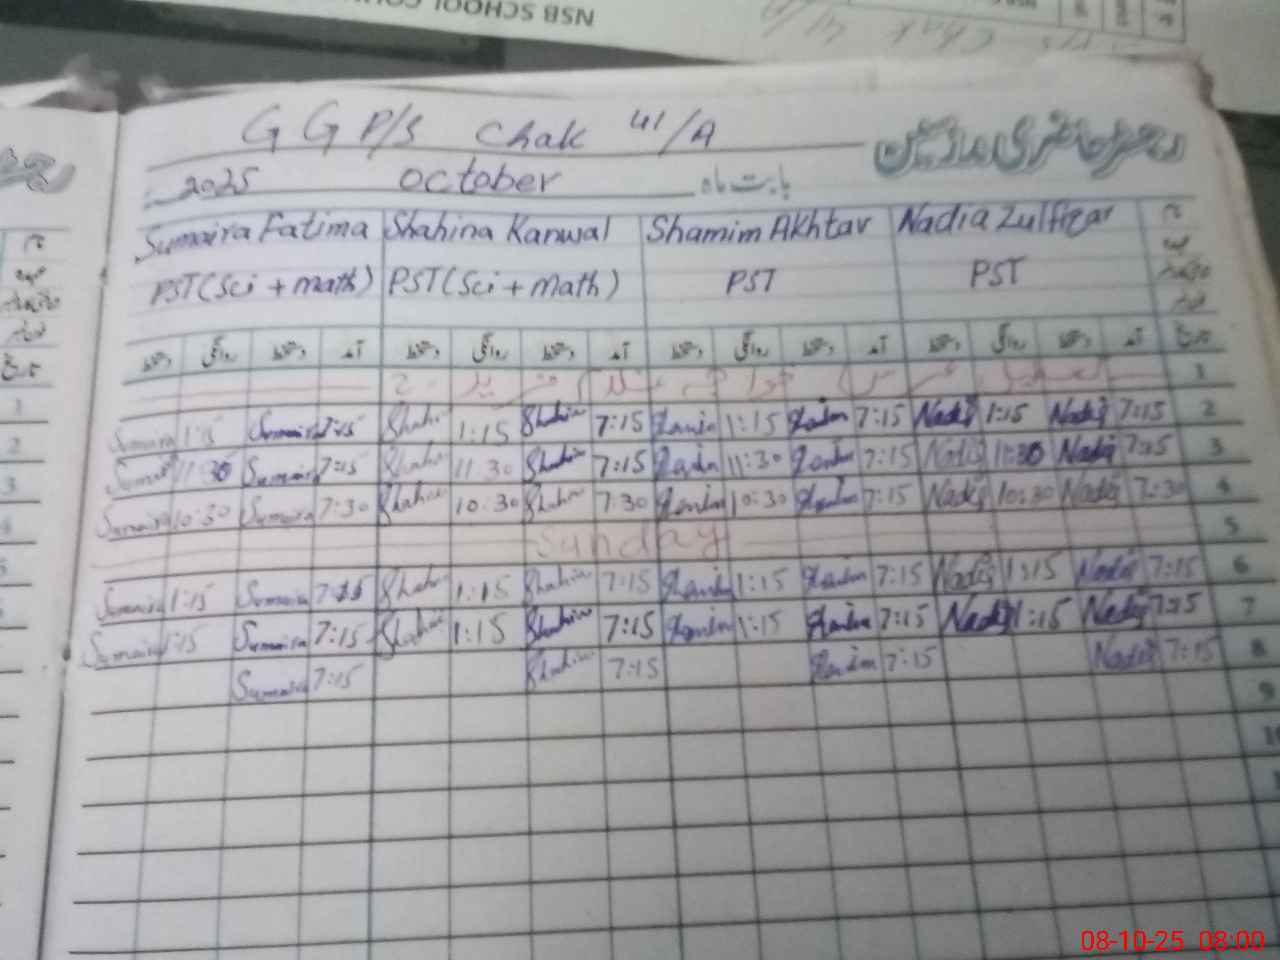 NSB SCHOOL
G G P/S Chak 41/A
رجسٹر حاضری ملازمین
2025 October بابت ماہ
Sumaira Fatima Shahina Kanwal Shamim Akhtar Nadia Zulfiqar
PST (Sci + math) PST (Sci + math) PST PST
دستخط روانگی دستخط آمد دستخط روانگی دستخط آمد دستخط روانگی دستخط آمد دستخط روانگی دستخط آمد تاریخ
1
Sumaira 1:15 Sumaira 7:15 Shahina 1:15 Shahina 7:15 Shamim 1:15 Shamim 7:15 Nadia 1:15 Nadia 7:15 2
Sumaira 11:30 Sumaira 7:15 Shahina 11:30 Shahina 7:15 Shamim 11:30 Shamim 7:15 Nadia 11:30 Nadia 7:15 3
Sumaira 10:30 Sumaira 7:30 Shahina 10:30 Shahina 7:30 Shamim 10:30 Shamim 7:15 Nadia 10:30 Nadia 7:30 4
Sunday 5
Sumaira 1:15 Sumaira 7:15 Shahina 1:15 Shahina 7:15 Shamim 1:15 Shamim 7:15 Nadia 1:15 Nadia 7:15 6
Sumaira 1:15 Sumaira 7:15 Shahina 1:15 Shahina 7:15 Shamim 1:15 Shamim 7:15 Nadia 1:15 Nadia 7:15 7
Sumaira 7:15 Shahina 7:15 Shamim 7:15 Nadia 7:15 8
9
08-10-25 08:00